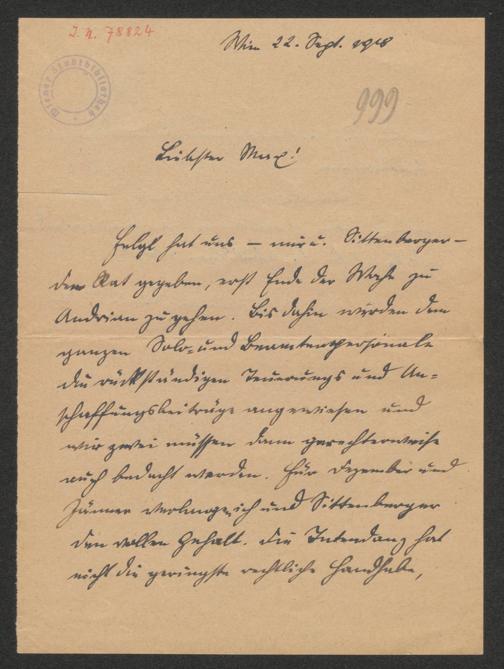 I. N. 78824
Wiener Stadtbibliothek
Wien 22. Sept. 1918
999
Liebster Max!
Felgl hat uns – mir u. Sittenberger –
den Rat gegeben, erst Ende der Woche zu
Andrian zu gehen. Bis dahin würden dem
ganzen Solo- und Beamtenpersonale
die rückständigen Teuerungs und An=
schaffungsbeiträge angewiesen und
wir zwei müssen dann gerechterweise
auch bedacht werden. Für Dezember und
Jänner verlangen ich und Sittenberger
den vollen Gehalt. Die Intendanz hat
nicht die geringste rechtliche Handhabe,